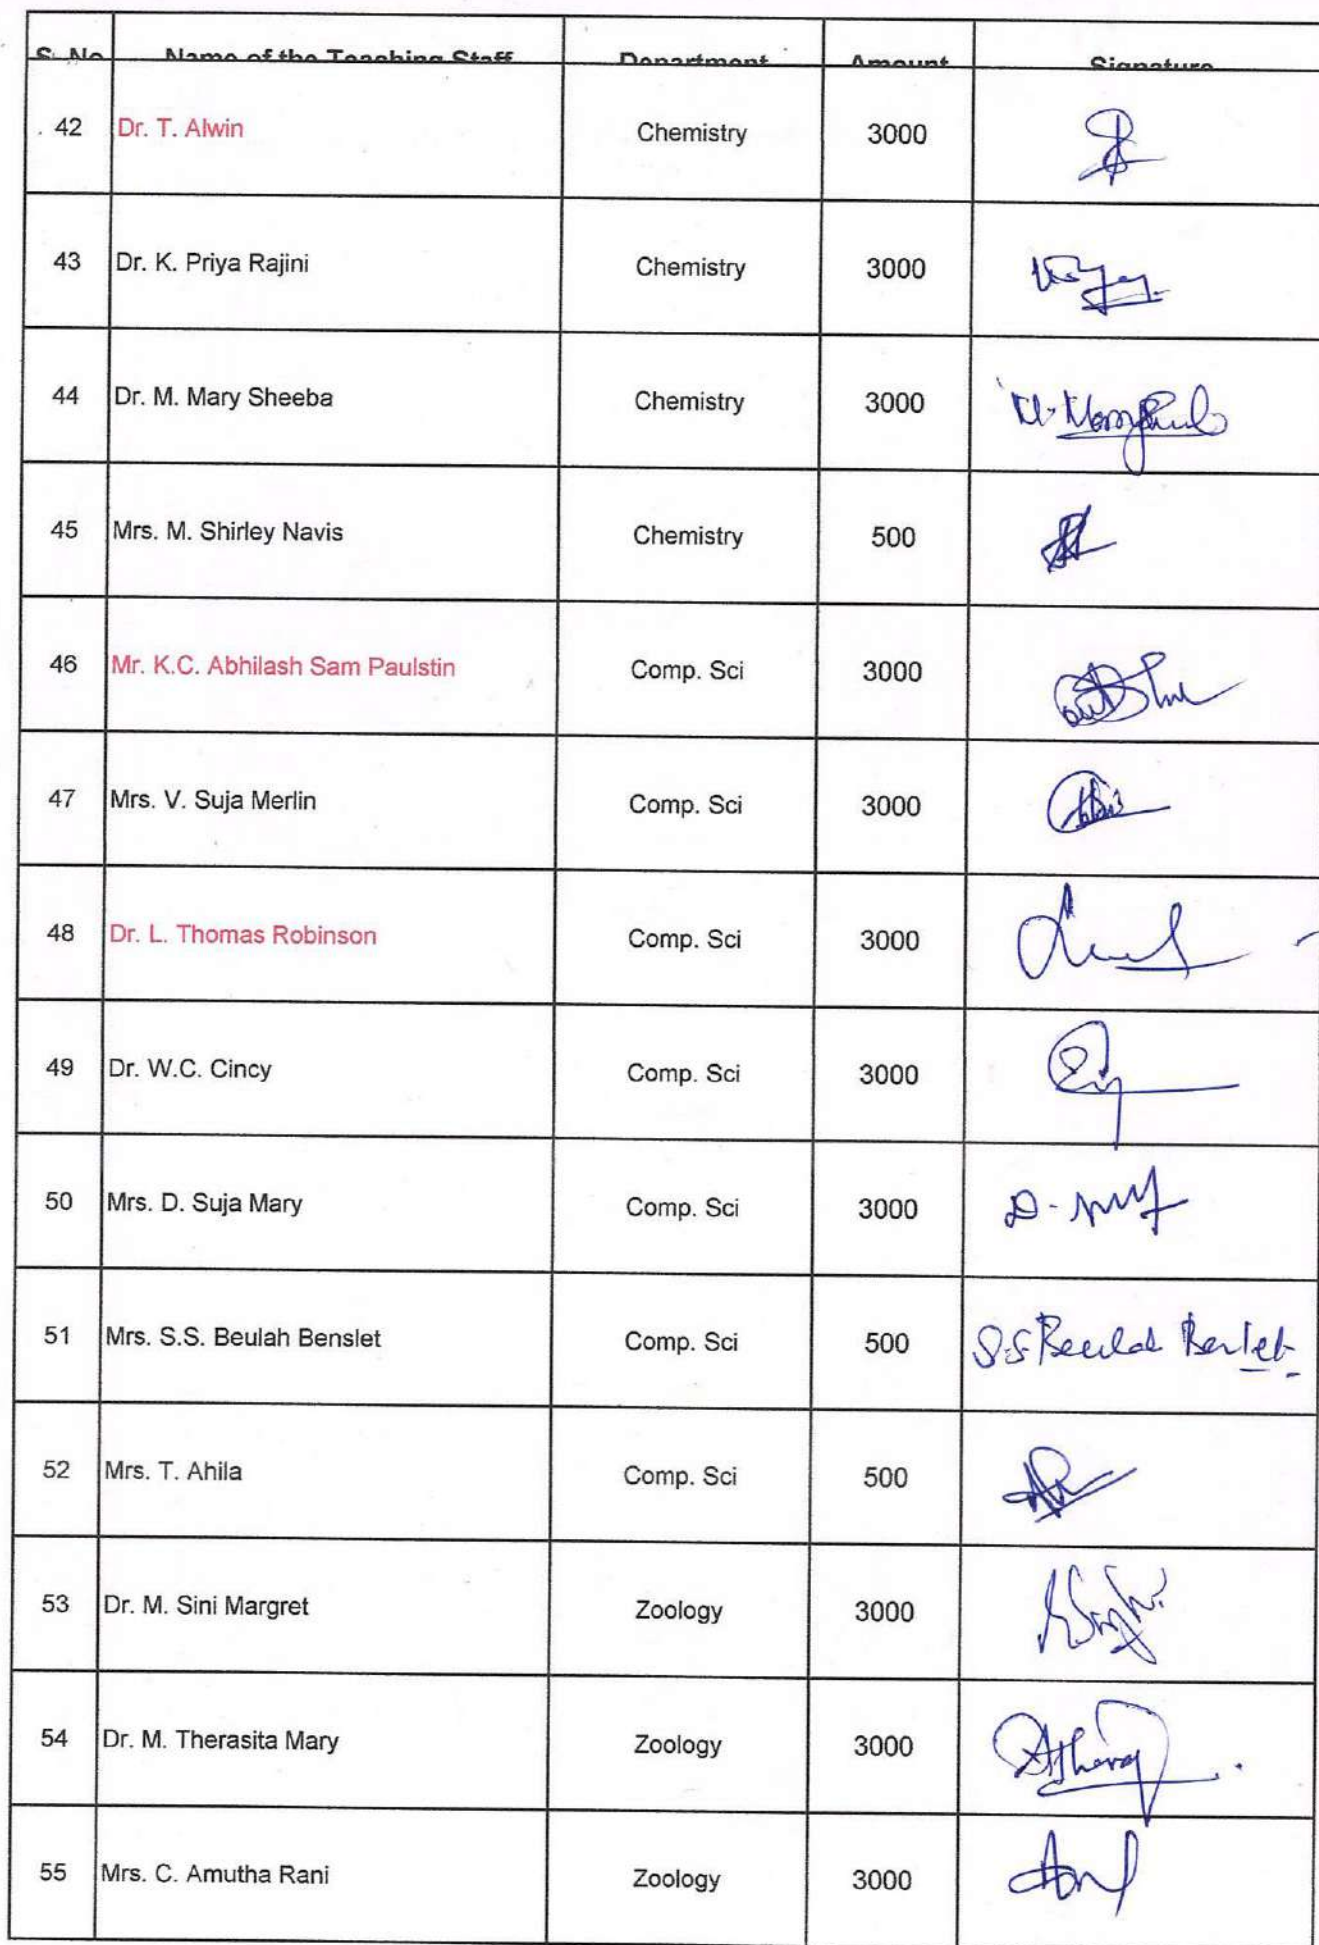 S. No Name of the Teaching Staff Department Amount Signature
42 Dr. T. Alwin Chemistry 3000
43 Dr. K. Priya Rajini Chemistry 3000
44 Dr. M. Mary Sheeba Chemistry 3000
45 Mrs. M. Shirley Navis Chemistry 500
46 Mr. K.C. Abhilash Sam Paulstin Comp. Sci 3000
47 Mrs. V. Suja Merlin Comp. Sci 3000
48 Dr. L. Thomas Robinson Comp. Sci 3000
49 Dr. W.C. Cincy Comp. Sci 3000
50 Mrs. D. Suja Mary Comp. Sci 3000
51 Mrs. S.S. Beulah Benslet Comp. Sci 500 S.S Beulah Benslet
52 Mrs. T. Ahila Comp. Sci 500
53 Dr. M. Sini Margret Zoology 3000
54 Dr. M. Therasita Mary Zoology 3000
55 Mrs. C. Amutha Rani Zoology 3000